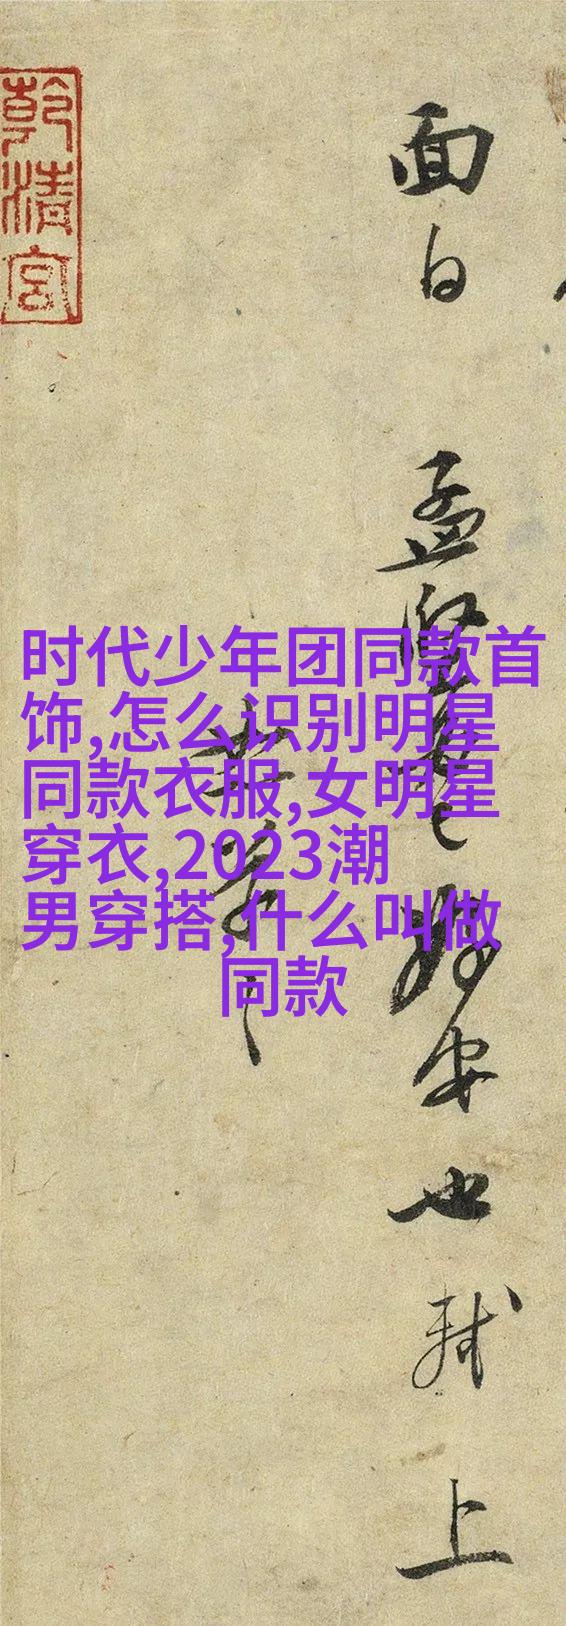 面白 孟堅 安也 軾 上
乾清宮
时代少年团同款首
饰,怎么识别明星
同款衣服,女明星
穿衣,2023潮
男穿搭,什么叫做
同款